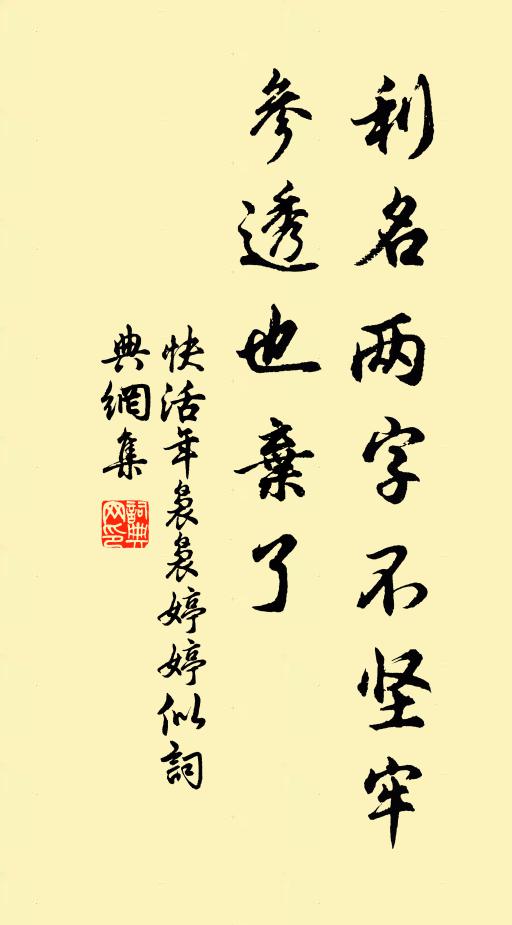 利名两字不坚牢
參透也棄了
快活年裊裊婷婷似詞
典網集
詞典
网印